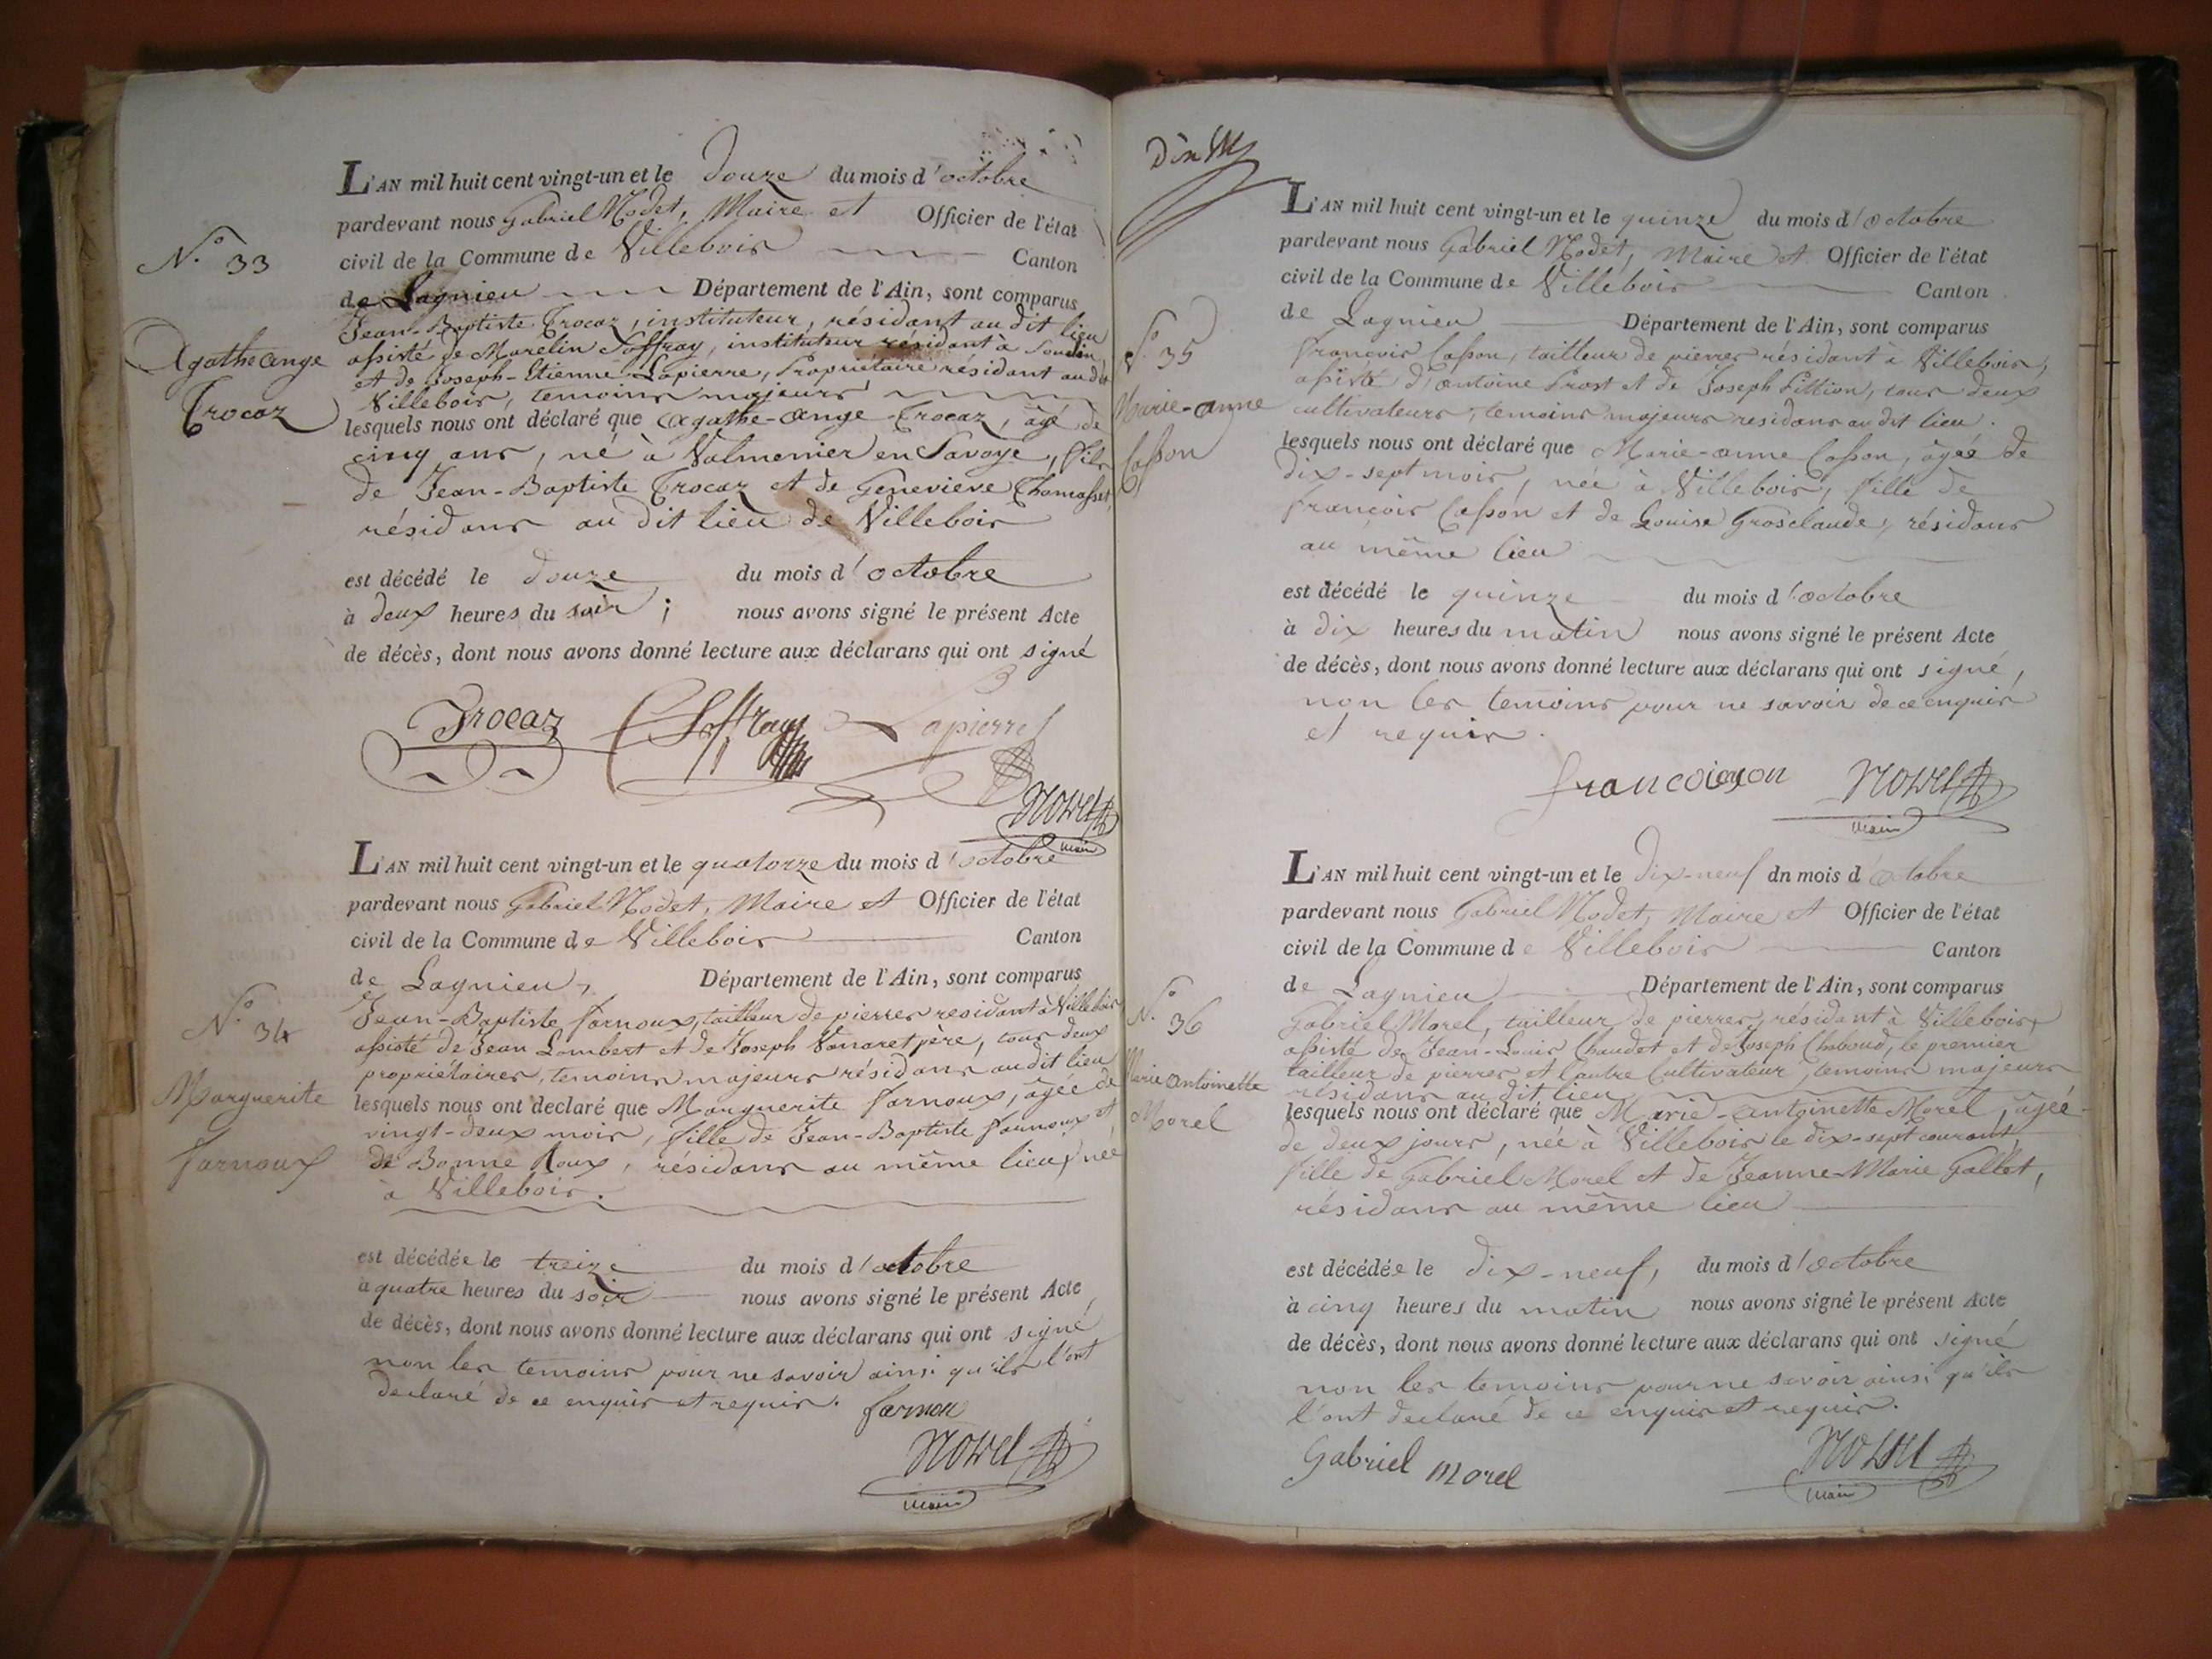 N.º 33
Agathe Ange
Trocaz
L'AN mil huit cent vingt-un et le douze du mois d'octobre
pardevant nous Gabriel Nodet, Maire et Officier de l'état
civil de la Commune de Villebois Canton
de Lagnieu Département de l'Ain, sont comparus
Jean-Baptiste Trocaz, instituteur, résidant au dit lieu
assisté de Marelin Soffray, instituteur résidant à
et de Joseph-Etienne Lapierre, Propriétaire résidant au dit
Villebois, temoins majeurs
lesquels nous ont déclaré que Agathe-Ange Trocaz, âgé de
cinq ans, né à Valmenier en Savoye, fils
de Jean-Baptiste Trocaz et de Genevieve
résidans au dit lieu de Villebois
est décédé le douze du mois d'octobre
à deux heures du soir ; nous avons signé le présent Acte
de décès, dont nous avons donné lecture aux déclarans qui ont signé
Trocaz Soffray Lapierre
Nodet
maire
N.º 34
Marguerite
farnoux
L'AN mil huit cent vingt-un et le quatorze du mois d'octobre
pardevant nous Gabriel Nodet, Maire et Officier de l'état
civil de la Commune de Villebois Canton
de Lagnieu, Département de l'Ain, sont comparus
Jean-Baptiste farnoux, tailleur de pierres residant à Villebois
assisté de Jean Lombert et de Joseph Vanaret père, tous deux
propriétaires, temoins majeurs résidans au dit lieu
lesquels nous ont declaré que Marguerite farnoux, âgée de
vingt-deux mois, fille de Jean-Baptiste farnoux et
de Bonne Roux, résidans au même lieu, née
à Villebois.
est décédée le treize du mois d'octobre
à quatre heures du soir nous avons signé le présent Acte
de décès, dont nous avons donné lecture aux déclarans qui ont signé
non les temoins pour ne savoir ainsi qu'ils l'ont
declaré de ce enquis et requis. farnou
Nodet
maire
N.º 35
Marie-anne
Casson
L'AN mil huit cent vingt-un et le quinze du mois d'octobre
pardevant nous Gabriel Nodet, Maire et Officier de l'état
civil de la Commune de Villebois Canton
de Lagnieu Département de l'Ain, sont comparus
francois Casson, tailleur de pierres résidant à Villebois,
assisté d'antoine Prost et de Joseph Pittion, tous deux
cultivateurs, temoins majeurs residans au dit lieu.
lesquels nous ont déclaré que Marie-anne Casson, âgée de
dix-sept mois, née à Villebois, fille de
françois Casson et de Louise Grosclaude, résidans
au même lieu
est décédé le quinze du mois d'octobre
à dix heures du matin nous avons signé le présent Acte
de décès, dont nous avons donné lecture aux déclarans qui ont signé,
non les temoins pour ne savoir de ce enquis
et requis.
Nodet
maire
N.º 36
Marie Antoinette
Morel
L'AN mil huit cent vingt-un et le dix-neuf dn mois d'octobre
pardevant nous Gabriel Nodet, Maire et Officier de l'état
civil de la Commune de Villebois Canton
de Lagnieu Département de l'Ain, sont comparus
Gabriel Morel, tailleur de pierres, résidant à Villebois,
assisté de Jean-Louis Chaudet et de Joseph Chaboud, le premier
tailleur de pierres et l'autre Cultivateur, temoins majeurs
résidans au dit lieu
lesquels nous ont déclaré que Marie-antoinette Morel, âgée
de deux jours, née à Villebois le dix-sept courant,
fille de Gabriel Morel et de Jeanne-Marie Gallet,
résidans au même lieu
est décédée le dix-neuf, du mois d'octobre
à cinq heures du matin nous avons signé le présent Acte
de décès, dont nous avons donné lecture aux déclarans qui ont signé
non les temoins pour ne savoir ainsi qu'ils
l'ont declaré de ce enquis et requis.
Gabriel morel
Nodet
maire